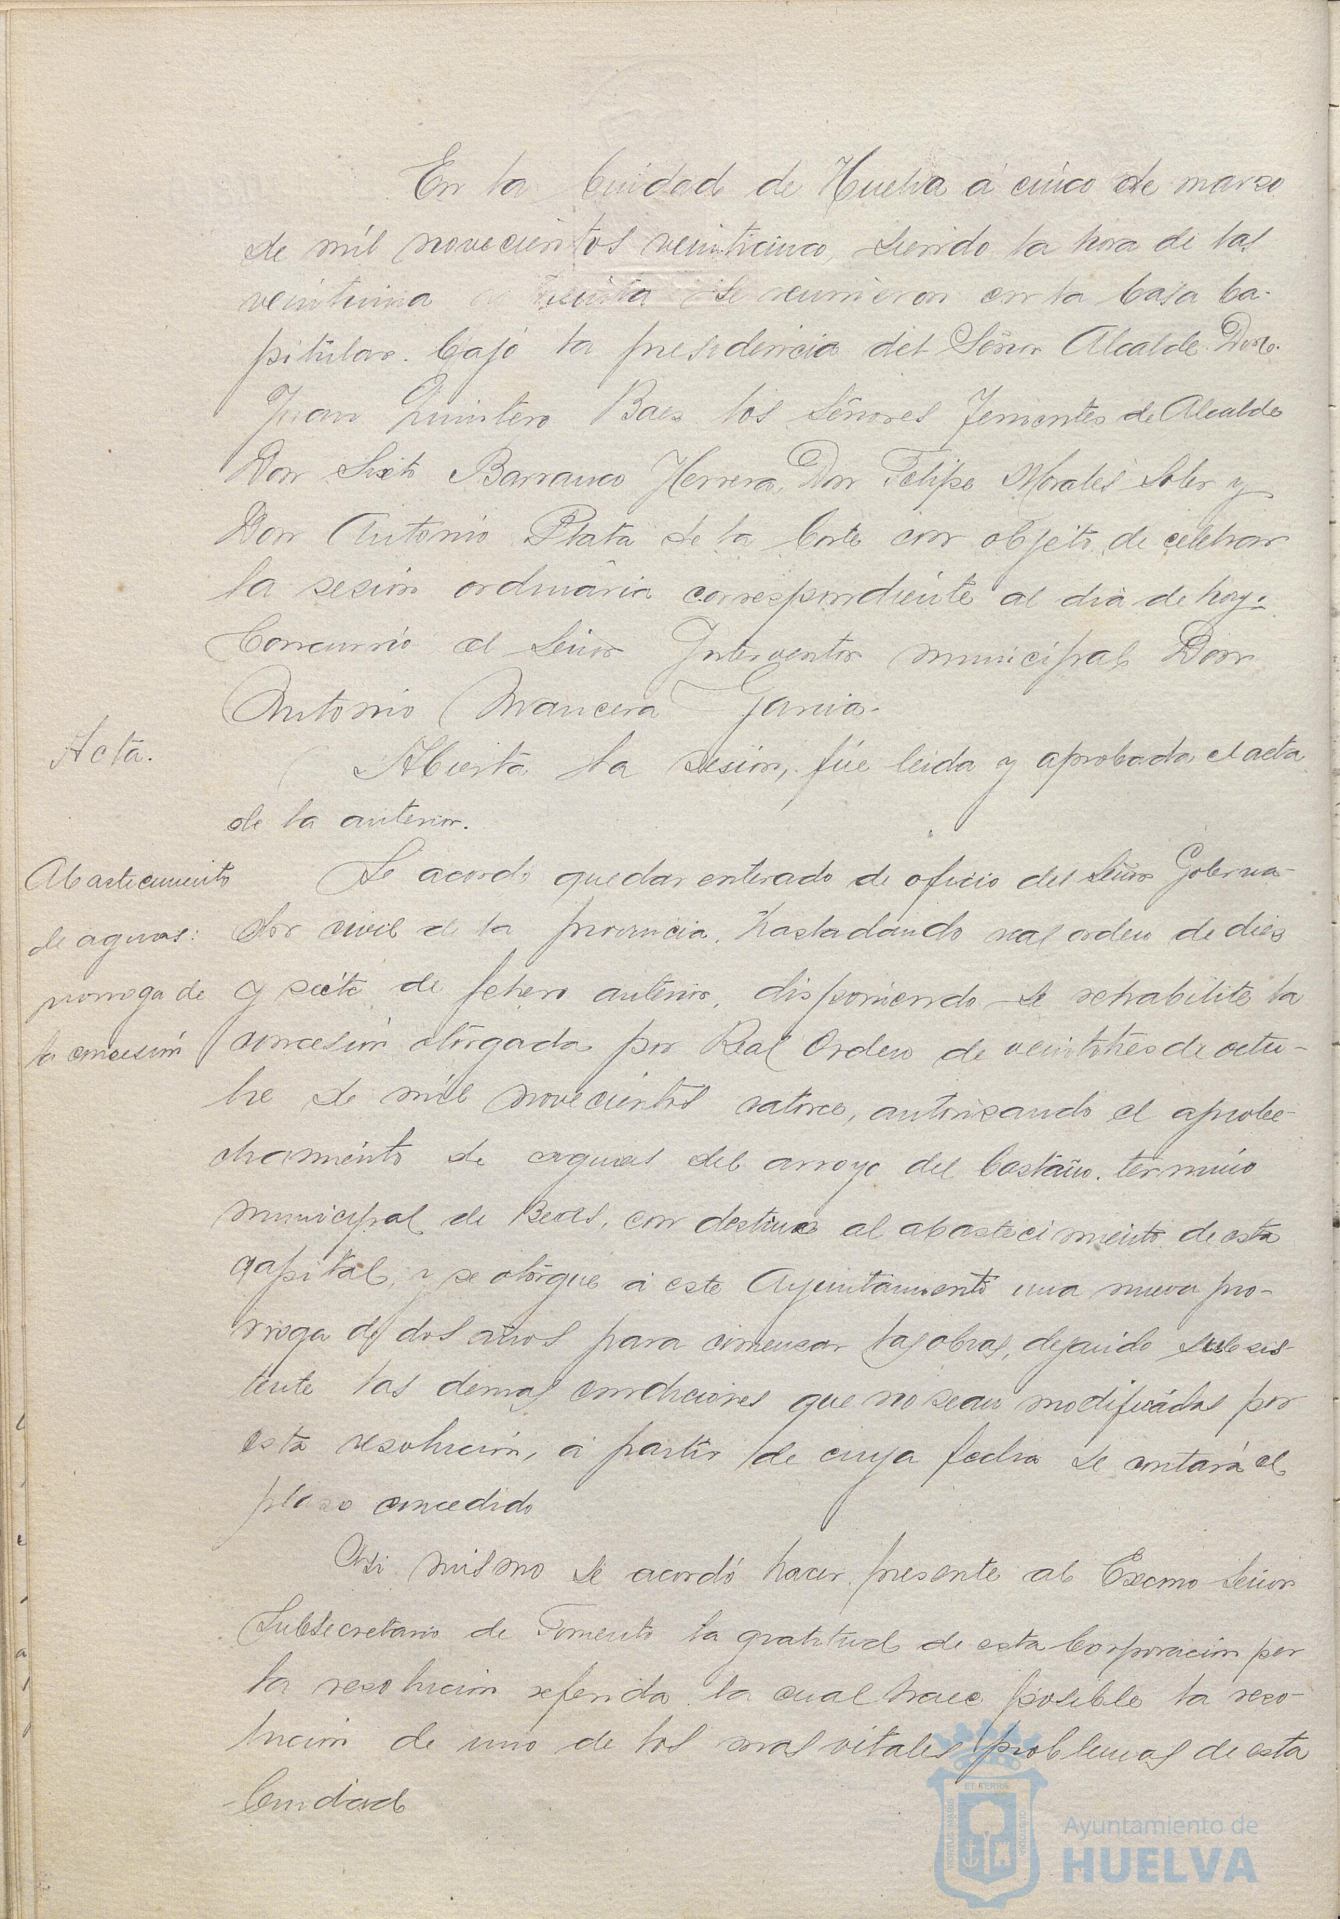 En la Ciudad de Huelva á cinco de marzo
de mil novecientos veinticinco, siendo la hora de las
veintiuna treinta se reunieron en la Casa Ca-
pitular bajo la presidencia del Señor Alcalde Don
Juan Quintero Baez los Señores Tenientes de Alcalde
Don Sixto Barranco Herrera, Don Felipe Morales Soler y
Don Antonio Plata de la Corte con objeto de celebrar
la sesión ordinaria correspondiente al dia de hoy.
Concurrió el Señor Interventor municipal Don
Antonio Mancera Garcia.
Acta.
Abierta la sesión, fué leida y aprobada el acta
de la anterior.
Abastecimiento
de aguas:
prorroga de
la concesión
Se acordó quedar enterado de oficio del Señor Goberna-
dor civil de la provincia, trasladando real orden de diez
y siete de febrero anterior, disponiendo se rehabilite la
concesión otorgada por Real Orden de veintitres de octu-
bre de mil novecientos catorce, autorizando el aprobe-
chamiento de aguas del arroyo del Castaño, termino
municipal de Beas, con destino al abastecimiento de esta
capital, y se otorgue á este Ayuntamiento una nueva pro-
rroga de dos años para comenzar las obras, dejando subsis-
tente las demas condiciones que no sean modificadas por
esta resolución, á partir de cuya fecha se contará el
plazo concedido
Asi mismo se acordó hacer presente al Excmo Señor
Subsecretario de Fomento la gratitud de esta Corporación por
la resolucion referida la cual hace posible la reso-
lucion de uno de los mas vitales problemas de esta
Ciudad
Ayuntamiento de
HUELVA